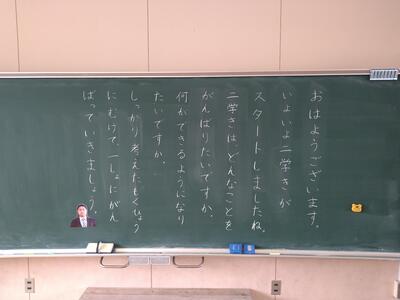 おはようございます。
いよいよ二学きが
スタートしましたね。
二学きは、どんなことを
がんばりたいですか。
何ができるようになり
たいですか。
しっかり考えたもくひょう
にむけて、一しょにがん
ばっていきましょう。